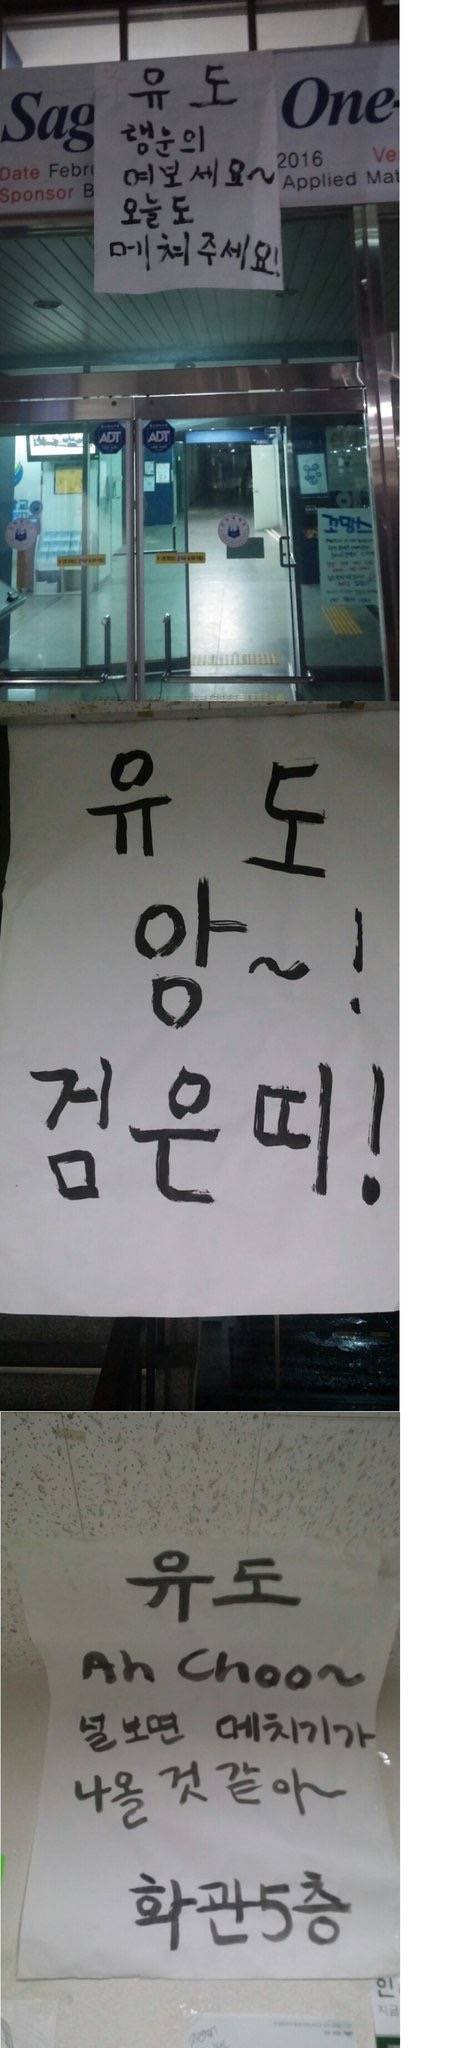 유도
행운의
여보세요~
오늘도
메쳐주세요!
Sag
One-
Date Febru
2016 Ve
Sponsor B
Applied Mat
ADT
ADT
꼬망스
유도
앙~!
검은띠!
유도
Ah Choo~
널보면 메치기가
나올 것 같아~
화관5층
지금